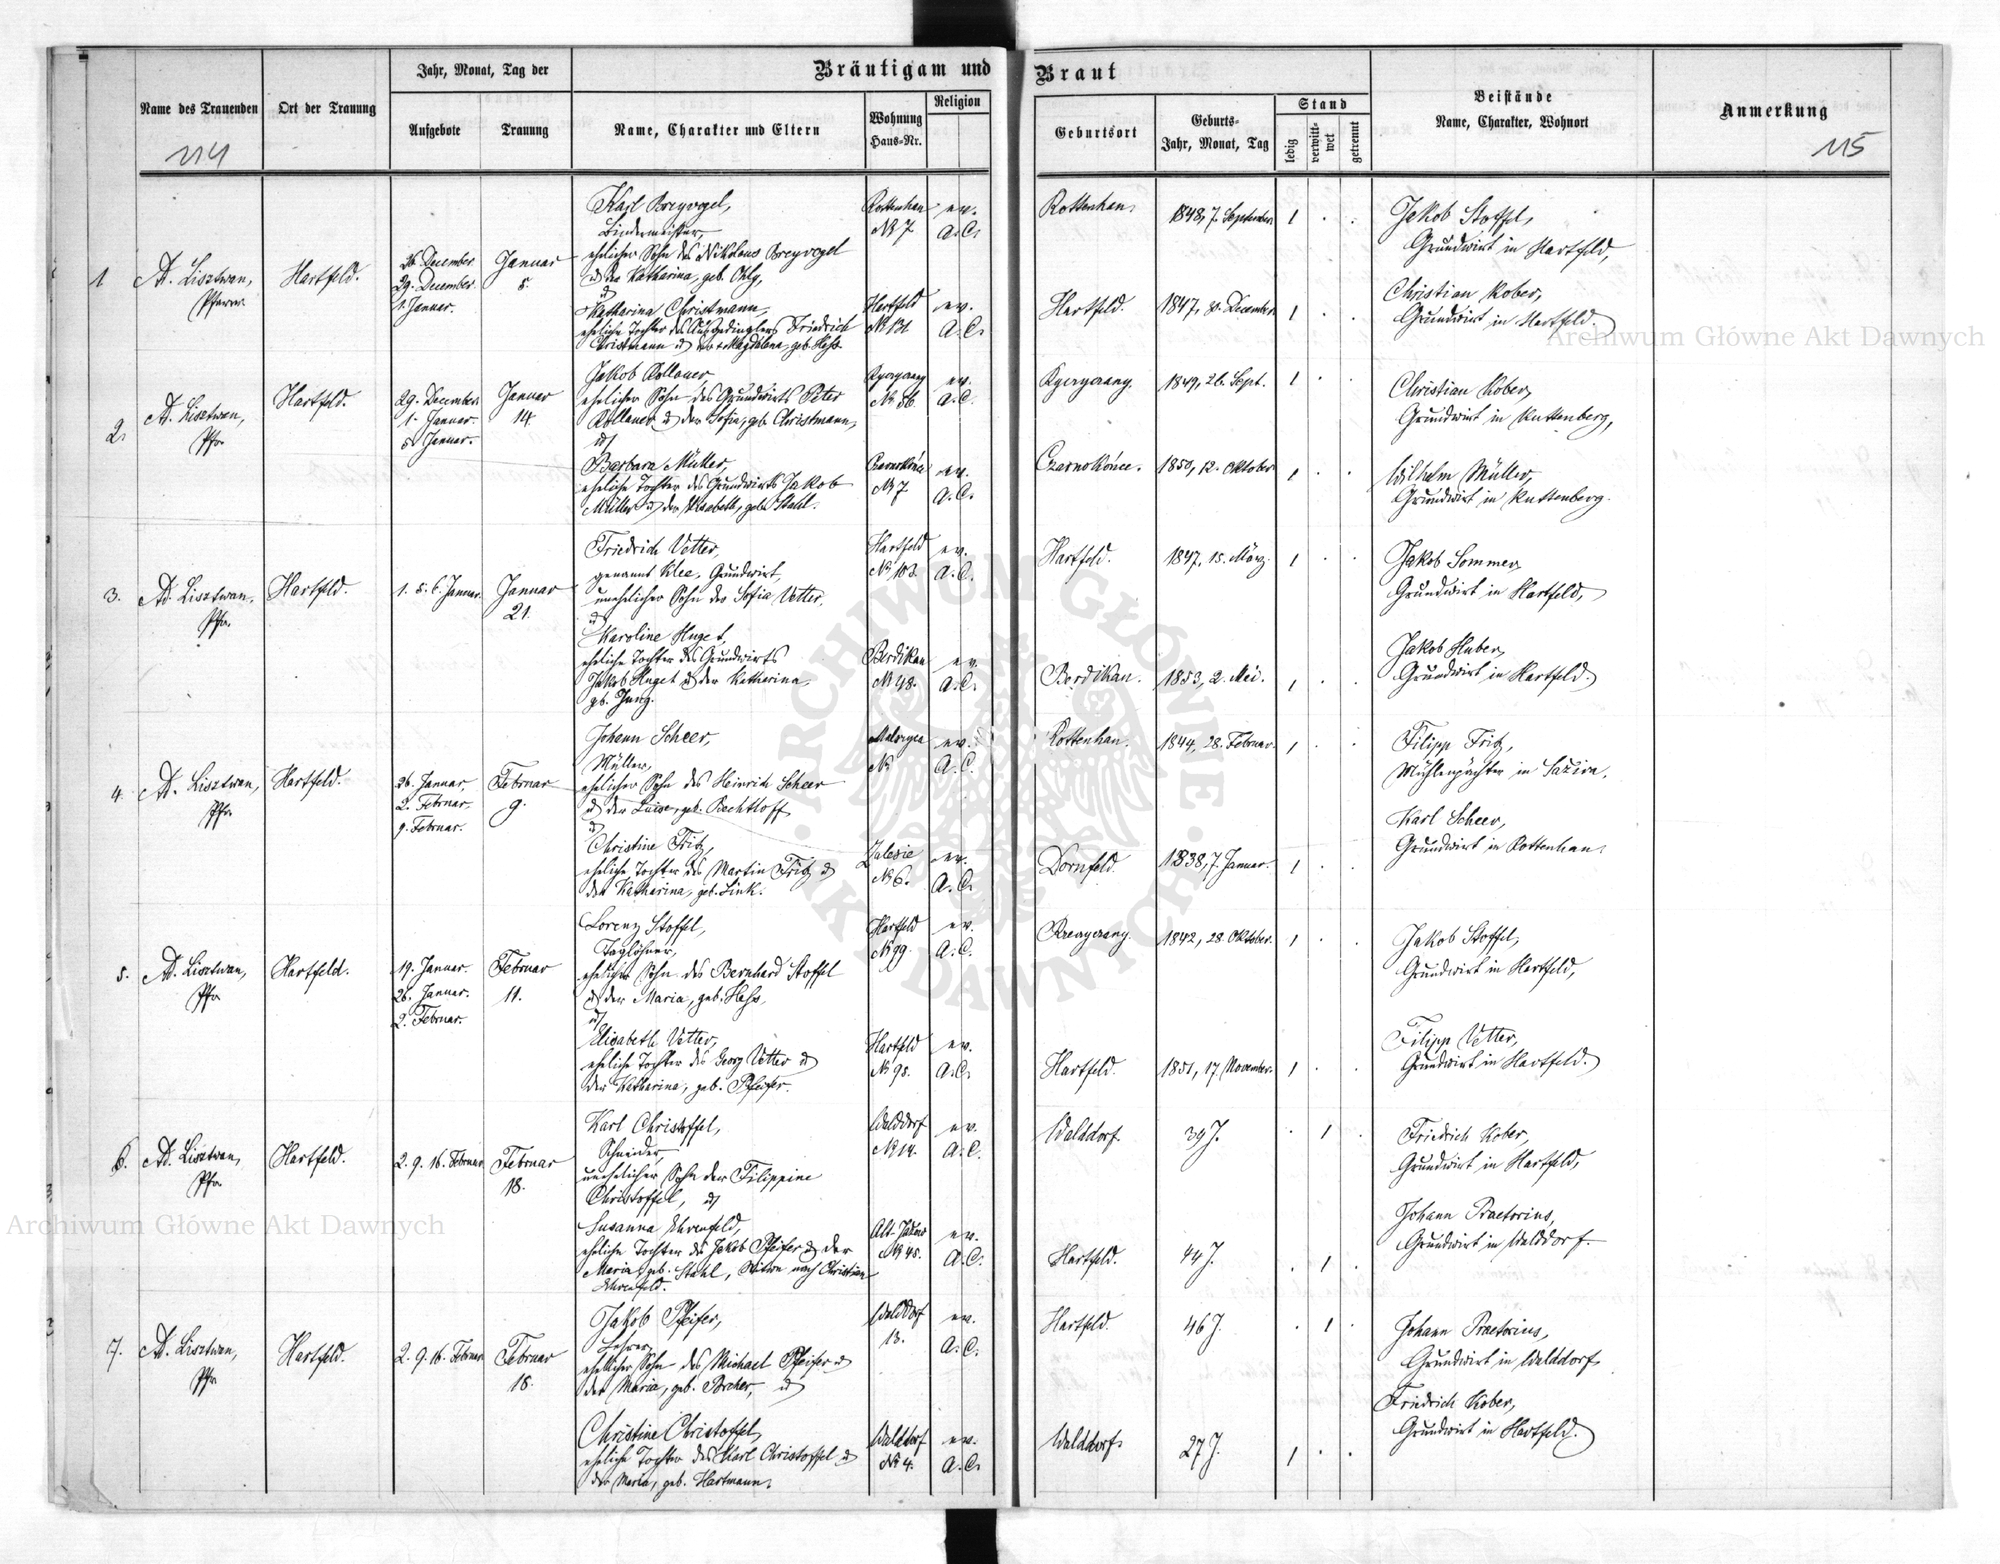 Jahr, Monat, Tag der
Bräutigam und
Braut
Name des Trauenden
Ort der Trauung
Aufgebote
Trauung
Name, Charakter und Eltern
Wohnung
Haus-Nr.
Religion
Geburtsort
Geburts-
Jahr, Monat, Tag
Stand
ledig
verwitt-
wet
getrennt
Beistände
Name, Charakter, Wohnort
Anmerkung
114
115
1
Ad. Lisztwan,
Pfarrer.
Hartfeld.
26. December
29. December.
1. Januar.
Januar
5.
Karl Breyvogel,
Bindermeister,
ehelicher Sohn des Nikolaus Breyvogel
u der Katharina, geb. Ohly,
u
Katharina Christmann,
eheliche Tochter des Ausgedinglers Friedrich
Christmann u der Magdalena, geb. Hess.
Rottenhan
№ 7
ev.
A.C.
Hartfeld
№ 131
ev.
A.C.
Rottenhan.
1848, 7. September
1 . .
Hartfeld.
1847, 30. December
1 . .
Jakob Stoffel,
Grundwirt in Hartfeld,
Christian Kober,
Grundwirt in Hartfeld.
2.
Ad. Lisztwan,
Pfr.
Hartfeld.
29. December
1. Januar.
5. Januar.
Januar
14.
Jakob Kollauer,
ehelicher Sohn des Grundwirts Peter
Kollauer u der Sofia, geb. Christmann,
u
Barbara Müller,
eheliche Tochter des Grundwirts Jakob
Müller u der Elisabeth, geb. Stahl.
№ 56.
ev.
A.C.
№ 7.
ev.
A.C.
1849, 26. Sept.
1 . .
Czarnokońce.
1850, 12. Oktober
1 . .
Christian Kober,
Grundwirt in Kuttenberg,
Wilhelm Müller,
Grundwirt in Kuttenberg.
3.
Ad. Lisztwan,
Pfr.
Hartfeld.
1. 5. 6. Januar.
Januar
21.
Friedrich Vetter,
genannt Klee, Grundwirt,
unehelicher Sohn der Sofia Vetter,
u
Karoline Huget,
eheliche Tochter des Grundwirts
Jakob Huget u der Katharina,
geb. Jung.
Hartfeld
№ 103.
ev.
A.C.
Berdikau
№ 48.
ev.
A.C.
Hartfeld.
1847, 15. März.
1 . .
Berdikau.
1853, 2. Mai.
1 . .
Jakob Sommer,
Grundwirt in Hartfeld,
Jakob Huber,
Grundwirt in Hartfeld.
4
Ad. Lisztwan,
Pfr.
Hartfeld.
26. Januar,
2. Februar,
9. Februar.
Februar
9.
Johann Scheer,
Müller,
ehelicher Sohn des Heinrich Scheer
u der Luise, geb. Bechtloff
u
Christine Fritz,
eheliche Tochter des Martin Fritz u
der Katharina, geb. Link.
№
ev.
A.C.
Zalesie
№ 6.
ev.
A.C.
Rottenhan.
1844, 28. Februar.
1 . .
Dornfeld.
1838, 7. Januar.
1 . .
Filipp Fritz,
Mühlenpächter in
Karl Scheer,
Grundwirt in Rottenhan.
5.
Ad. Lisztwan,
Pfr.
Hartfeld.
19. Januar.
26. Januar.
2. Februar.
Februar
11.
Lorenz Stoffel,
Taglöhner,
ehelicher Sohn des Bernhard Stoffel
u der Maria, geb. Hess,
u
Elisabeth Vetter,
eheliche Tochter des Georg Vetter u
der Katharina, geb. Pfeifer.
Hartfeld
№ 99.
ev.
A.C.
Hartfeld
№ 98.
ev.
A.C.
1842, 28. Oktober.
1 . .
Hartfeld.
1851, 17. November.
1 . .
Jakob Stoffel,
Grundwirt in Hartfeld,
Filipp Vetter,
Grundwirt in Hartfeld.
6.
Ad. Lisztwan,
Pfr.
Hartfeld.
2. 9. 16. Februar
Februar
18.
Karl Christoffel,
Schneider,
unehelicher Sohn der Filippine
Christoffel, u
Susanna Ehrenfeld,
eheliche Tochter des Jakob Pfeifer u der
Maria, geb. Stahl, Witwe nach Christian
Ehrenfeld.
Walddorf
№ 14.
ev.
A.C.
№ 45.
ev.
A.C.
Walddorf.
39 J.
. 1 .
Hartfeld.
44 J.
. 1 .
Friedrich Kober,
Grundwirt in Hartfeld,
Johann Praetorius,
Grundwirt in Walddorf.
7.
Ad. Lisztwan,
Pfr.
Hartfeld.
2. 9. 16. Februar
Februar
18.
Jakob Pfeifer,
Lehrer,
ehelicher Sohn des Michael Pfeifer u
der Maria, geb. Bricher, u
Christine Christoffel,
eheliche Tochter des Karl Christoffel u
der Maria, geb. Hartmann.
Walddorf
13.
ev.
A.C.
Walddorf
№ 4.
ev.
A.C.
Hartfeld.
46 J.
. 1 .
Walddorf.
27 J.
1 . .
Johann Praetorius,
Grundwirt in Walddorf
Friedrich Kober,
Grundwirt in Hartfeld.
Archiwum Główne Akt Dawnych
Archiwum Główne Akt Dawnych
ARCHIWUM GŁÓWNE
AKT DAWNYCH